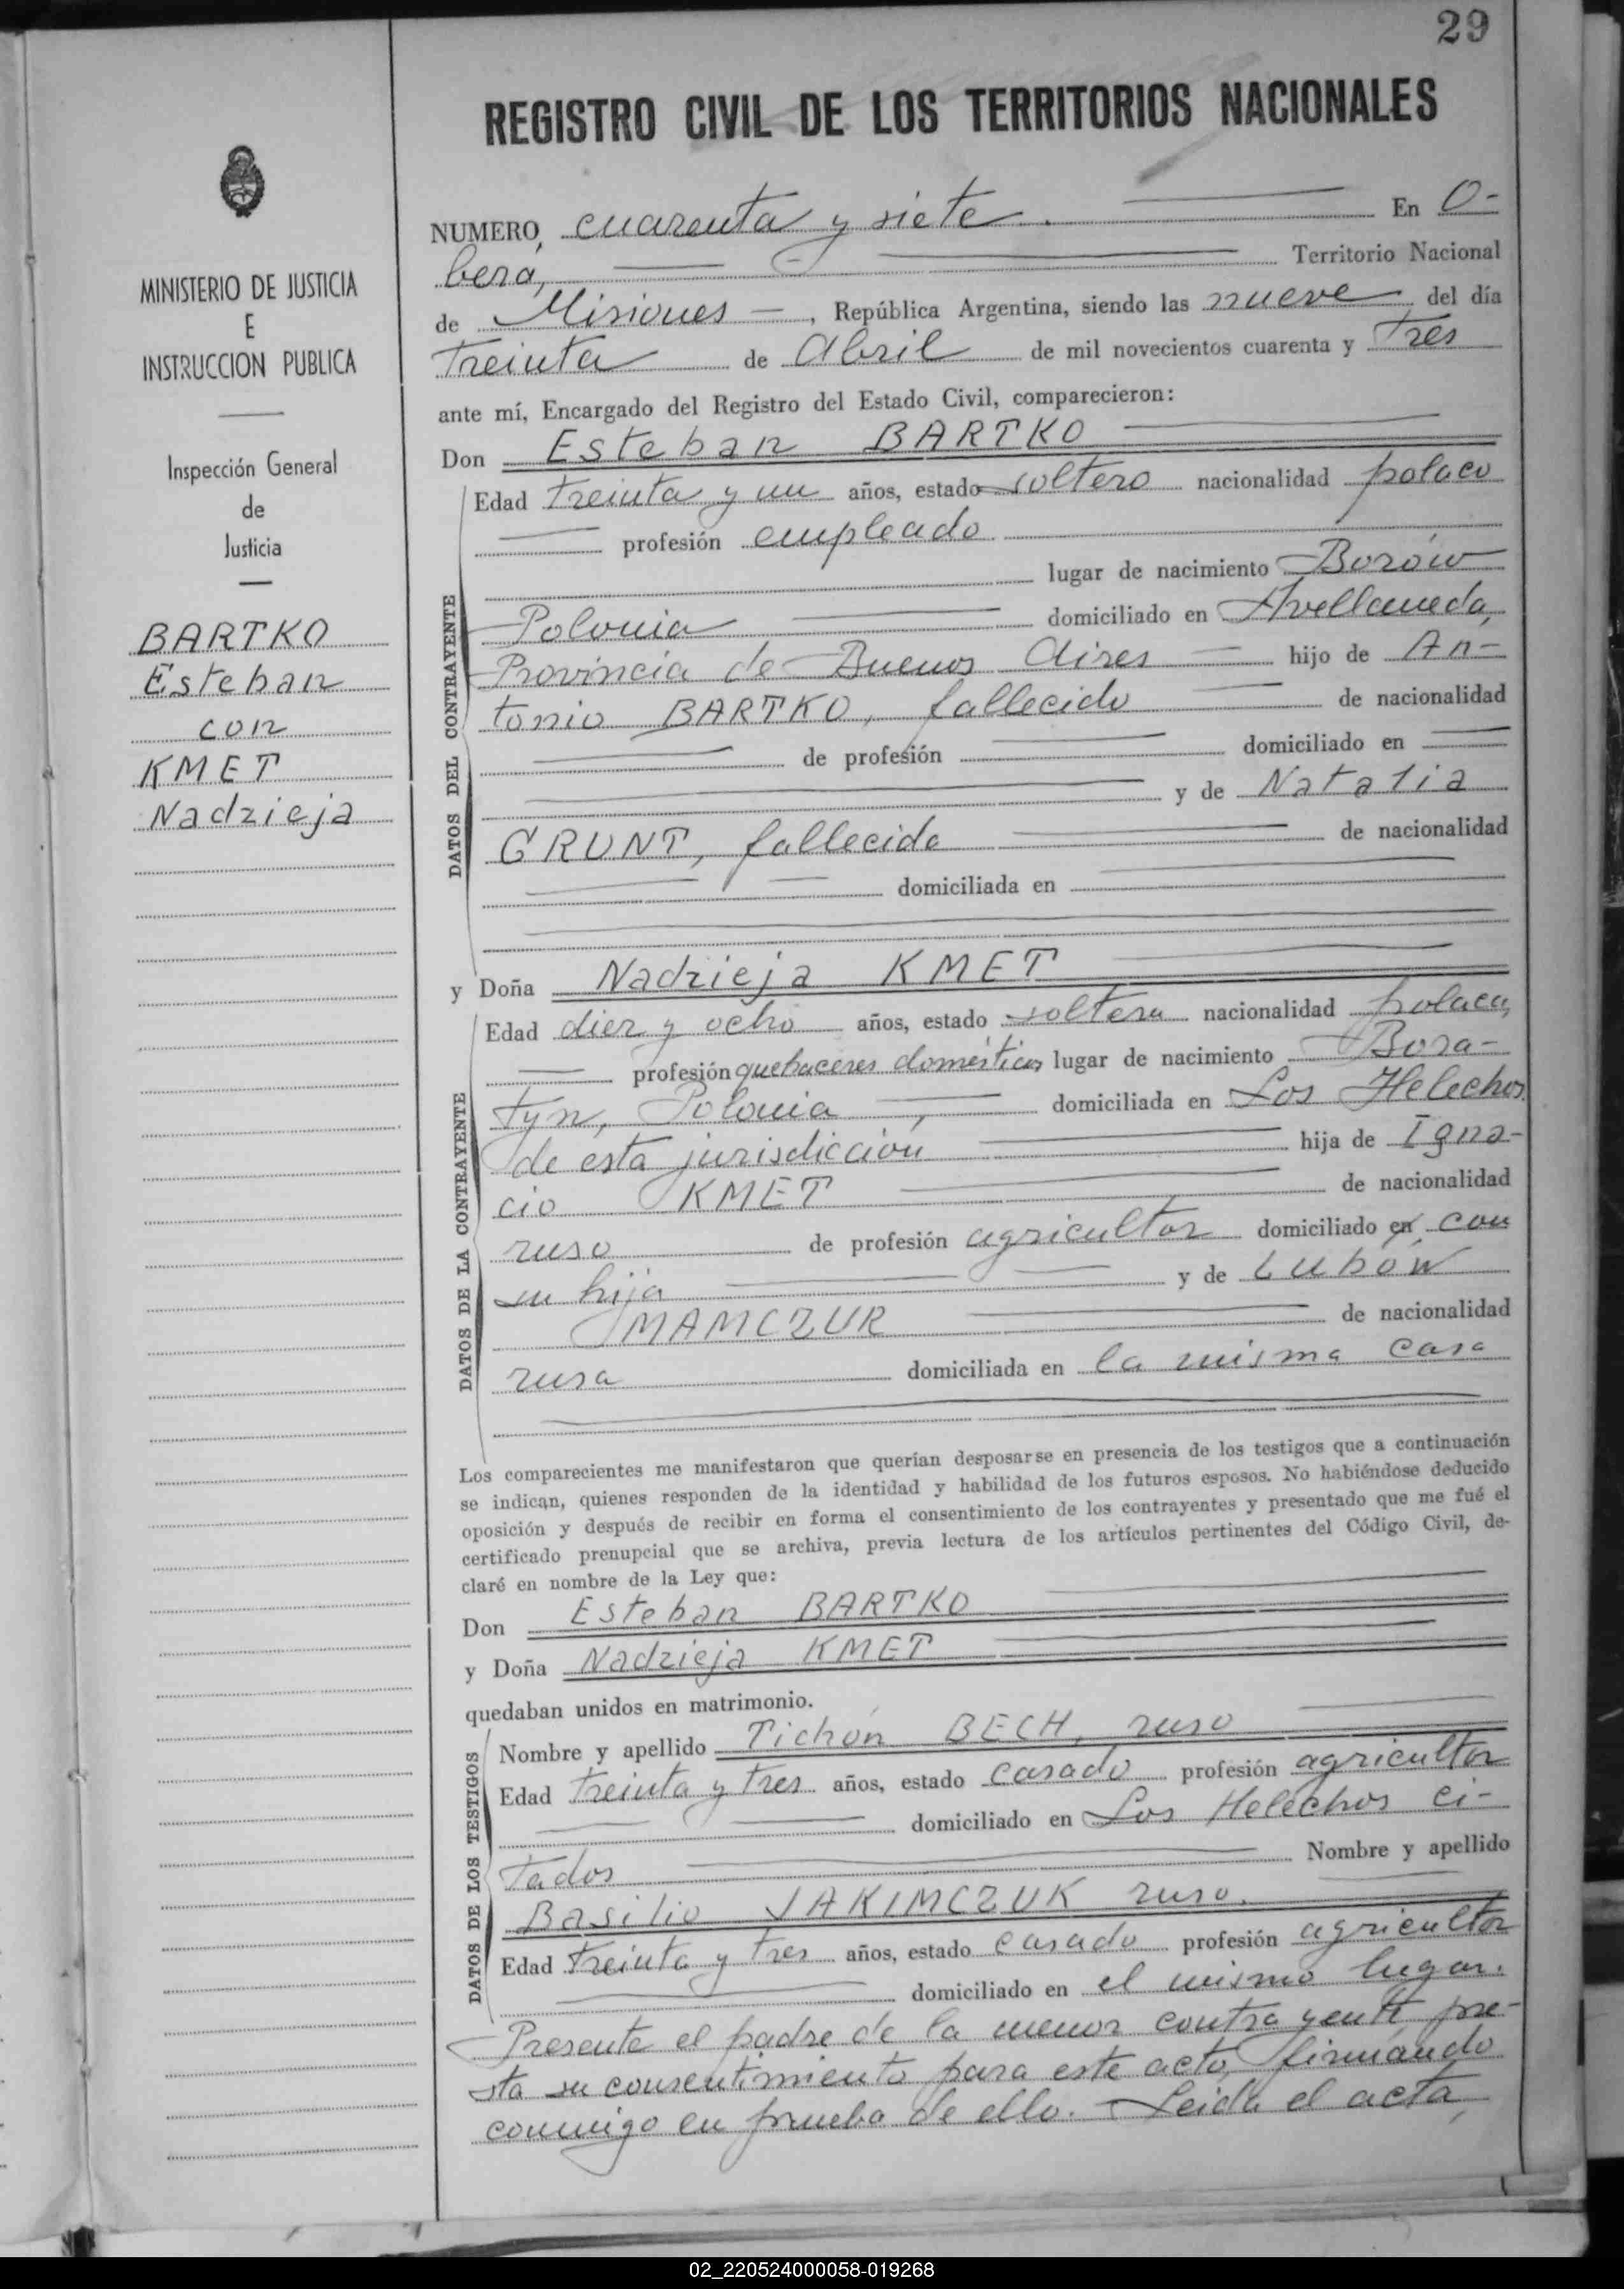 29
REGISTRO CIVIL DE LOS TERRITORIOS NACIONALES
MINISTERIO DE JUSTICIA
E
INSTRUCCION PUBLICA
Inspección General
de
Justicia
BARTKO
Esteban
con
KMET
Nadzieja
NUMERO, cuarenta y siete. En O-
berá, Territorio Nacional
de Misiones, República Argentina, siendo las nueve del día
treinta de Abril de mil novecientos cuarenta y tres
ante mí, Encargado del Registro del Estado Civil, comparecieron:
Don Esteban BARTKO
DATOS DEL CONTRAYENTE
Edad treinta y un años, estado soltero nacionalidad polaco
profesión empleado
lugar de nacimiento Borów
Polonia domiciliado en Avellaneda,
Provincia de Buenos Aires hijo de An-
tonio BARTKO, fallecido de nacionalidad
de profesión domiciliado en
y de Natalia
GRUNT, fallecida de nacionalidad
domiciliada en
y Doña Nadzieja KMET
DATOS DE LA CONTRAYENTE
Edad diez y ocho años, estado soltera nacionalidad polaca,
profesión quehaceres domésticos lugar de nacimiento Bora-
tyn, Polonia, domiciliada en Los Helechos
de esta jurisdicción hija de Igna-
cio KMET de nacionalidad
ruso de profesión agricultor domiciliado en con
su hija y de Lubów
MAMCZUR de nacionalidad
rusa domiciliada en la misma casa
Los comparecientes me manifestaron que querían desposarse en presencia de los testigos que a continuación
se indican, quienes responden de la identidad y habilidad de los futuros esposos. No habiéndose deducido
oposición y después de recibir en forma el consentimiento de los contrayentes y presentado que me fué el
certificado prenupcial que se archiva, previa lectura de los artículos pertinentes del Código Civil, de-
claré en nombre de la Ley que:
Don Esteban BARTKO
y Doña Nadzieja KMET
quedaban unidos en matrimonio.
DATOS DE LOS TESTIGOS
Nombre y apellido Tichón BECH, ruso
Edad treinta y tres años, estado casado profesión agricultor
domiciliado en Los Helechos ci-
tados Nombre y apellido
Basilio JAKIMCZUK ruso.
Edad treinta y tres años, estado casado profesión agricultor
domiciliado en el mismo lugar.
Presente el padre de la menor contrayente pre-
sta su consentimiento para este acto, firmando
conmigo en prueba de ello. Leída el acta,
02_220524000058-019268